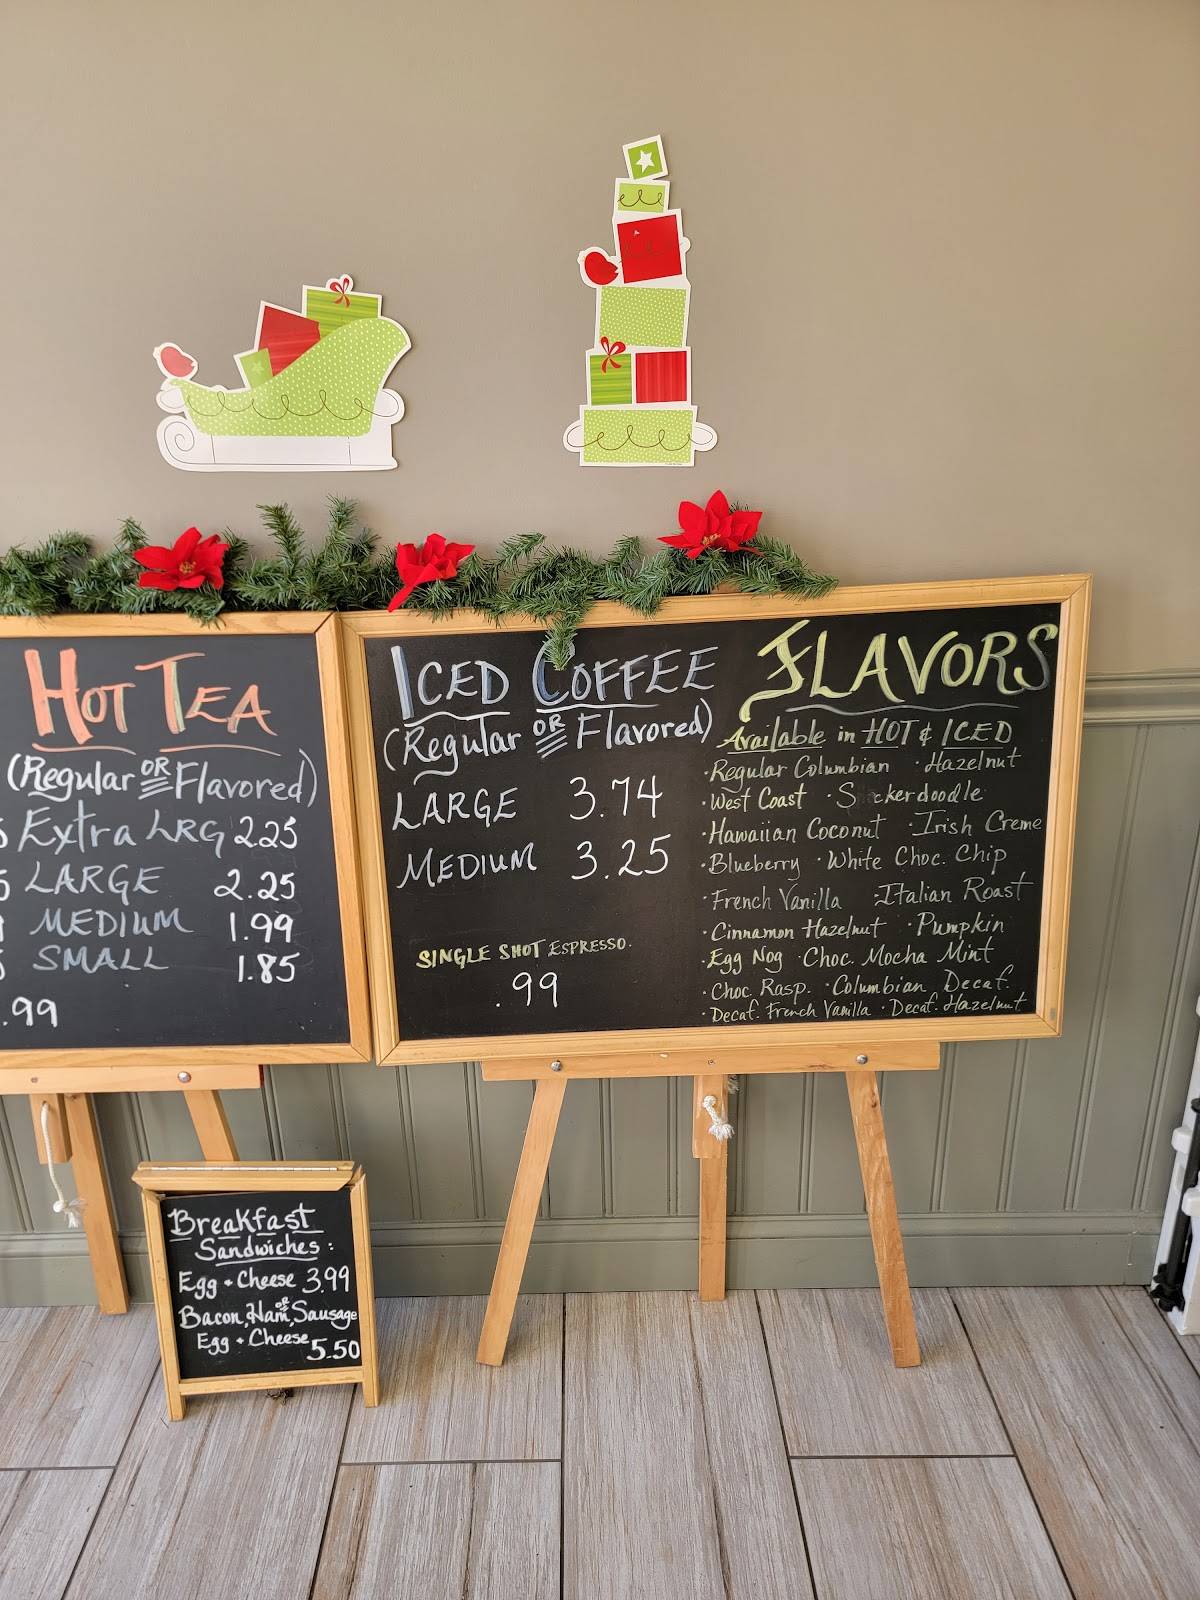 HOT TEA
(Regular OR Flavored)
5 Extra LRG 2.25
5 LARGE 2.25
MEDIUM 1.99
5 SMALL 1.85
.99
ICED COFFEE
(Regular OR Flavored)
LARGE 3.74
MEDIUM 3.25
SINGLE SHOT ESPRESSO.
.99
FLAVORS
Available in HOT & ICED
· Regular Columbian · Hazelnut
· West Coast
· Hawaiian Coconut · Irish Creme
· Blueberry · White Choc. Chip
· French Vanilla Italian Roast
· Cinnamon Hazelnut · Pumpkin
· Egg Nog · Choc. Mocha Mint
· Choc. Rasp. · Columbian Decaf.
· Decaf. French Vanilla · Decaf. Hazelnut
Breakfast
Sandwiches:
Egg + Cheese 3.99
Bacon, Ham, or Sausage
Egg + Cheese 5.50